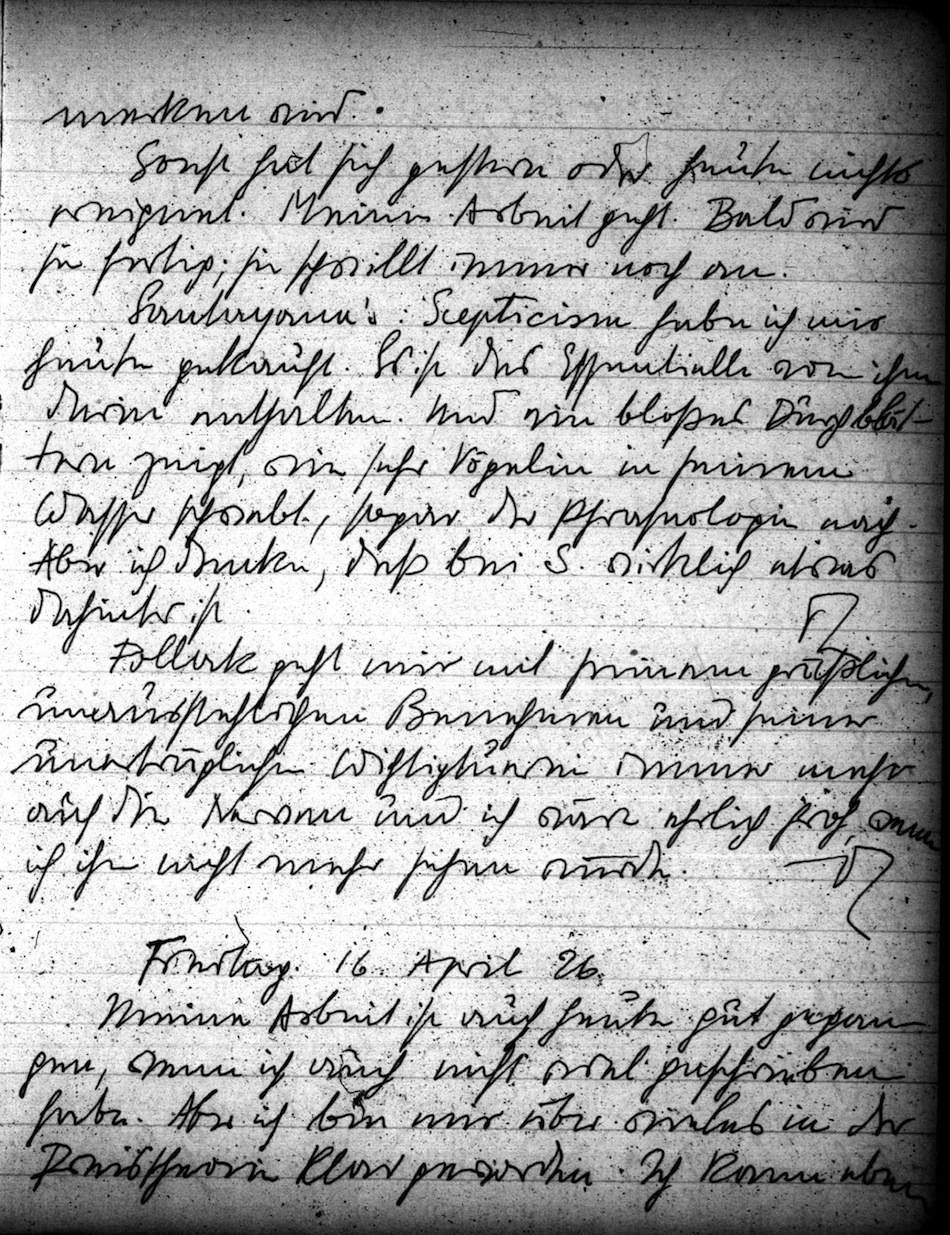 merken wird.
Sonst hat sich gestern oder heute nichts
ereignet. Meine Arbeit geht. Bald wird
sie fertig; sie schwillt immer noch an.
Santayana's: Scepticism habe ich mir
heute gekauft. Es ist das Essentielle von ihm
darin enthalten. Und ein bloßes Durchblät-
tern zeigt, wie sehr Vögelin in seinem
Wasser schwebt, sogar der Phraseologie nach.
Aber ich denke, daß bei S. wirklich etwas
dahinter ist.
Pollack geht mir mit seinem gräßlichen,
unausstehlichen Benehmen und seiner
unerträglichen Wichtigtuerei immer mehr
auf die Nerven und ich wäre ehrlich froh, wenn
ich ihn nicht mehr sehen würde.
Freitag. 16. April 26.
Meine Arbeit ist auch heute gut gegan-
gen, wenn ich auch nicht viel geschrieben
habe. Aber ich bin mir über vieles in der
Preistheorie klar geworden. Ich kann eben